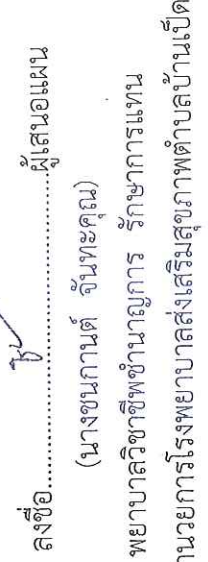 ลงชื่อ........................................ผู้เสนอแผน
(นางชนกานต์ จันทะคุณ)
พยาบาลวิชาชีพชำนาญการ รักษาการแทน
านวยการโรงพยาบาลส่งเสริมสุขภาพตำบลบ้านเป็ด